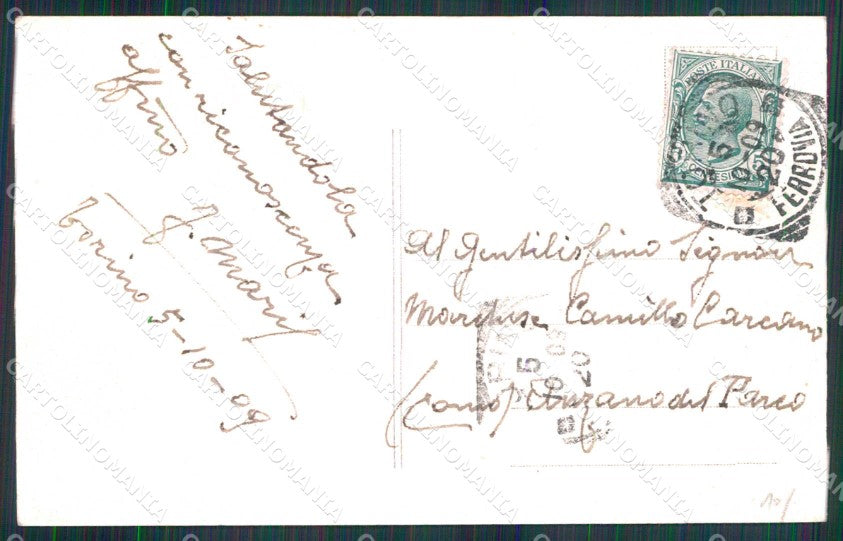 Salutandola
con riconoscenza
affmo
J. Mari
Torino 5-10-09
POSTE ITALIANE
CENTESIMI
TORINO
5
09
20
FERROVIA
Al Gentilissimo Signor
Marchese Camillo Carcano
(Como) Anzano del Parco
5
20
CARTOLINOMANIA